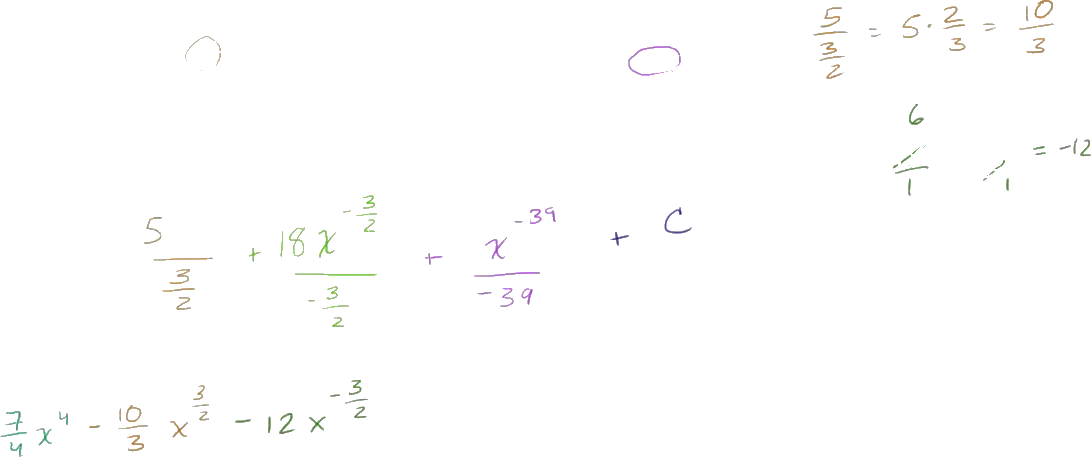 5/(3/2) = 5 · 2/3 = 10/3
6
/1 /1 = -12
5/(3/2) + 18x^(-3/2)/(-3/2) + x^(-39)/(-39) + C
7/4 x^4 - 10/3 x^(3/2) - 12x^(-3/2)